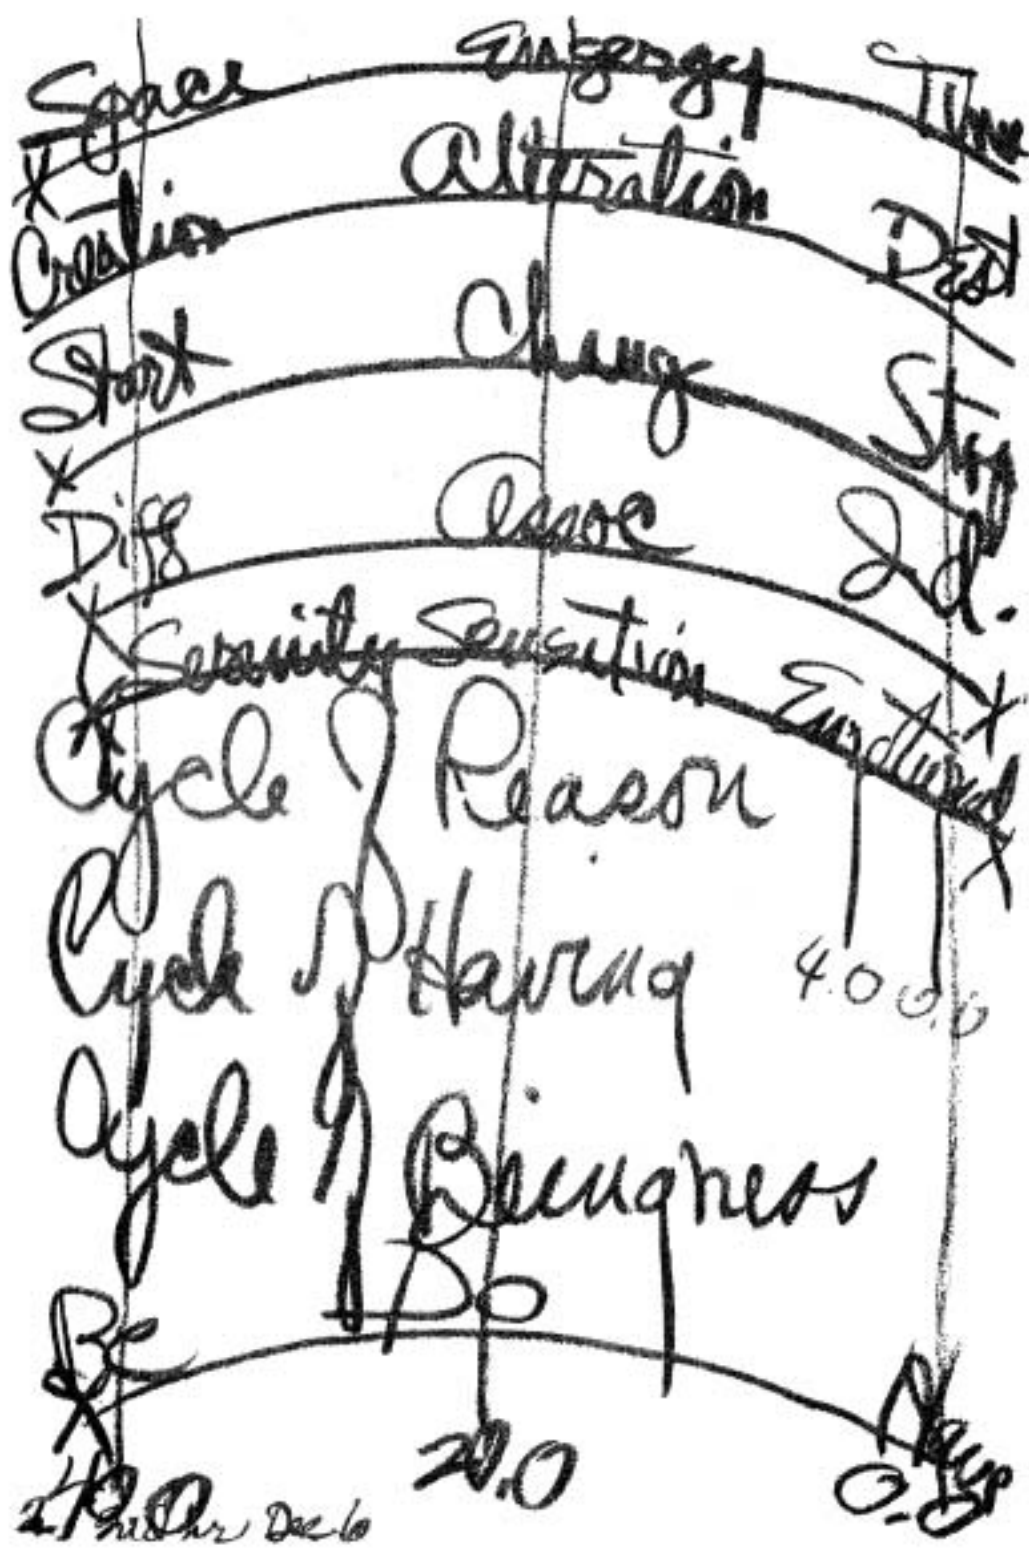 Space Energy Time
Creation Alteration Dest
Start Change Stop
Diff Assoc Id.
Serenity Sensation Enturbul
Cycle of Reason
Cycle of Having 4.0 0.0
Cycle of Beingness
Be Do Have
40.0 20.0 0.0
2nd hr Dec 6